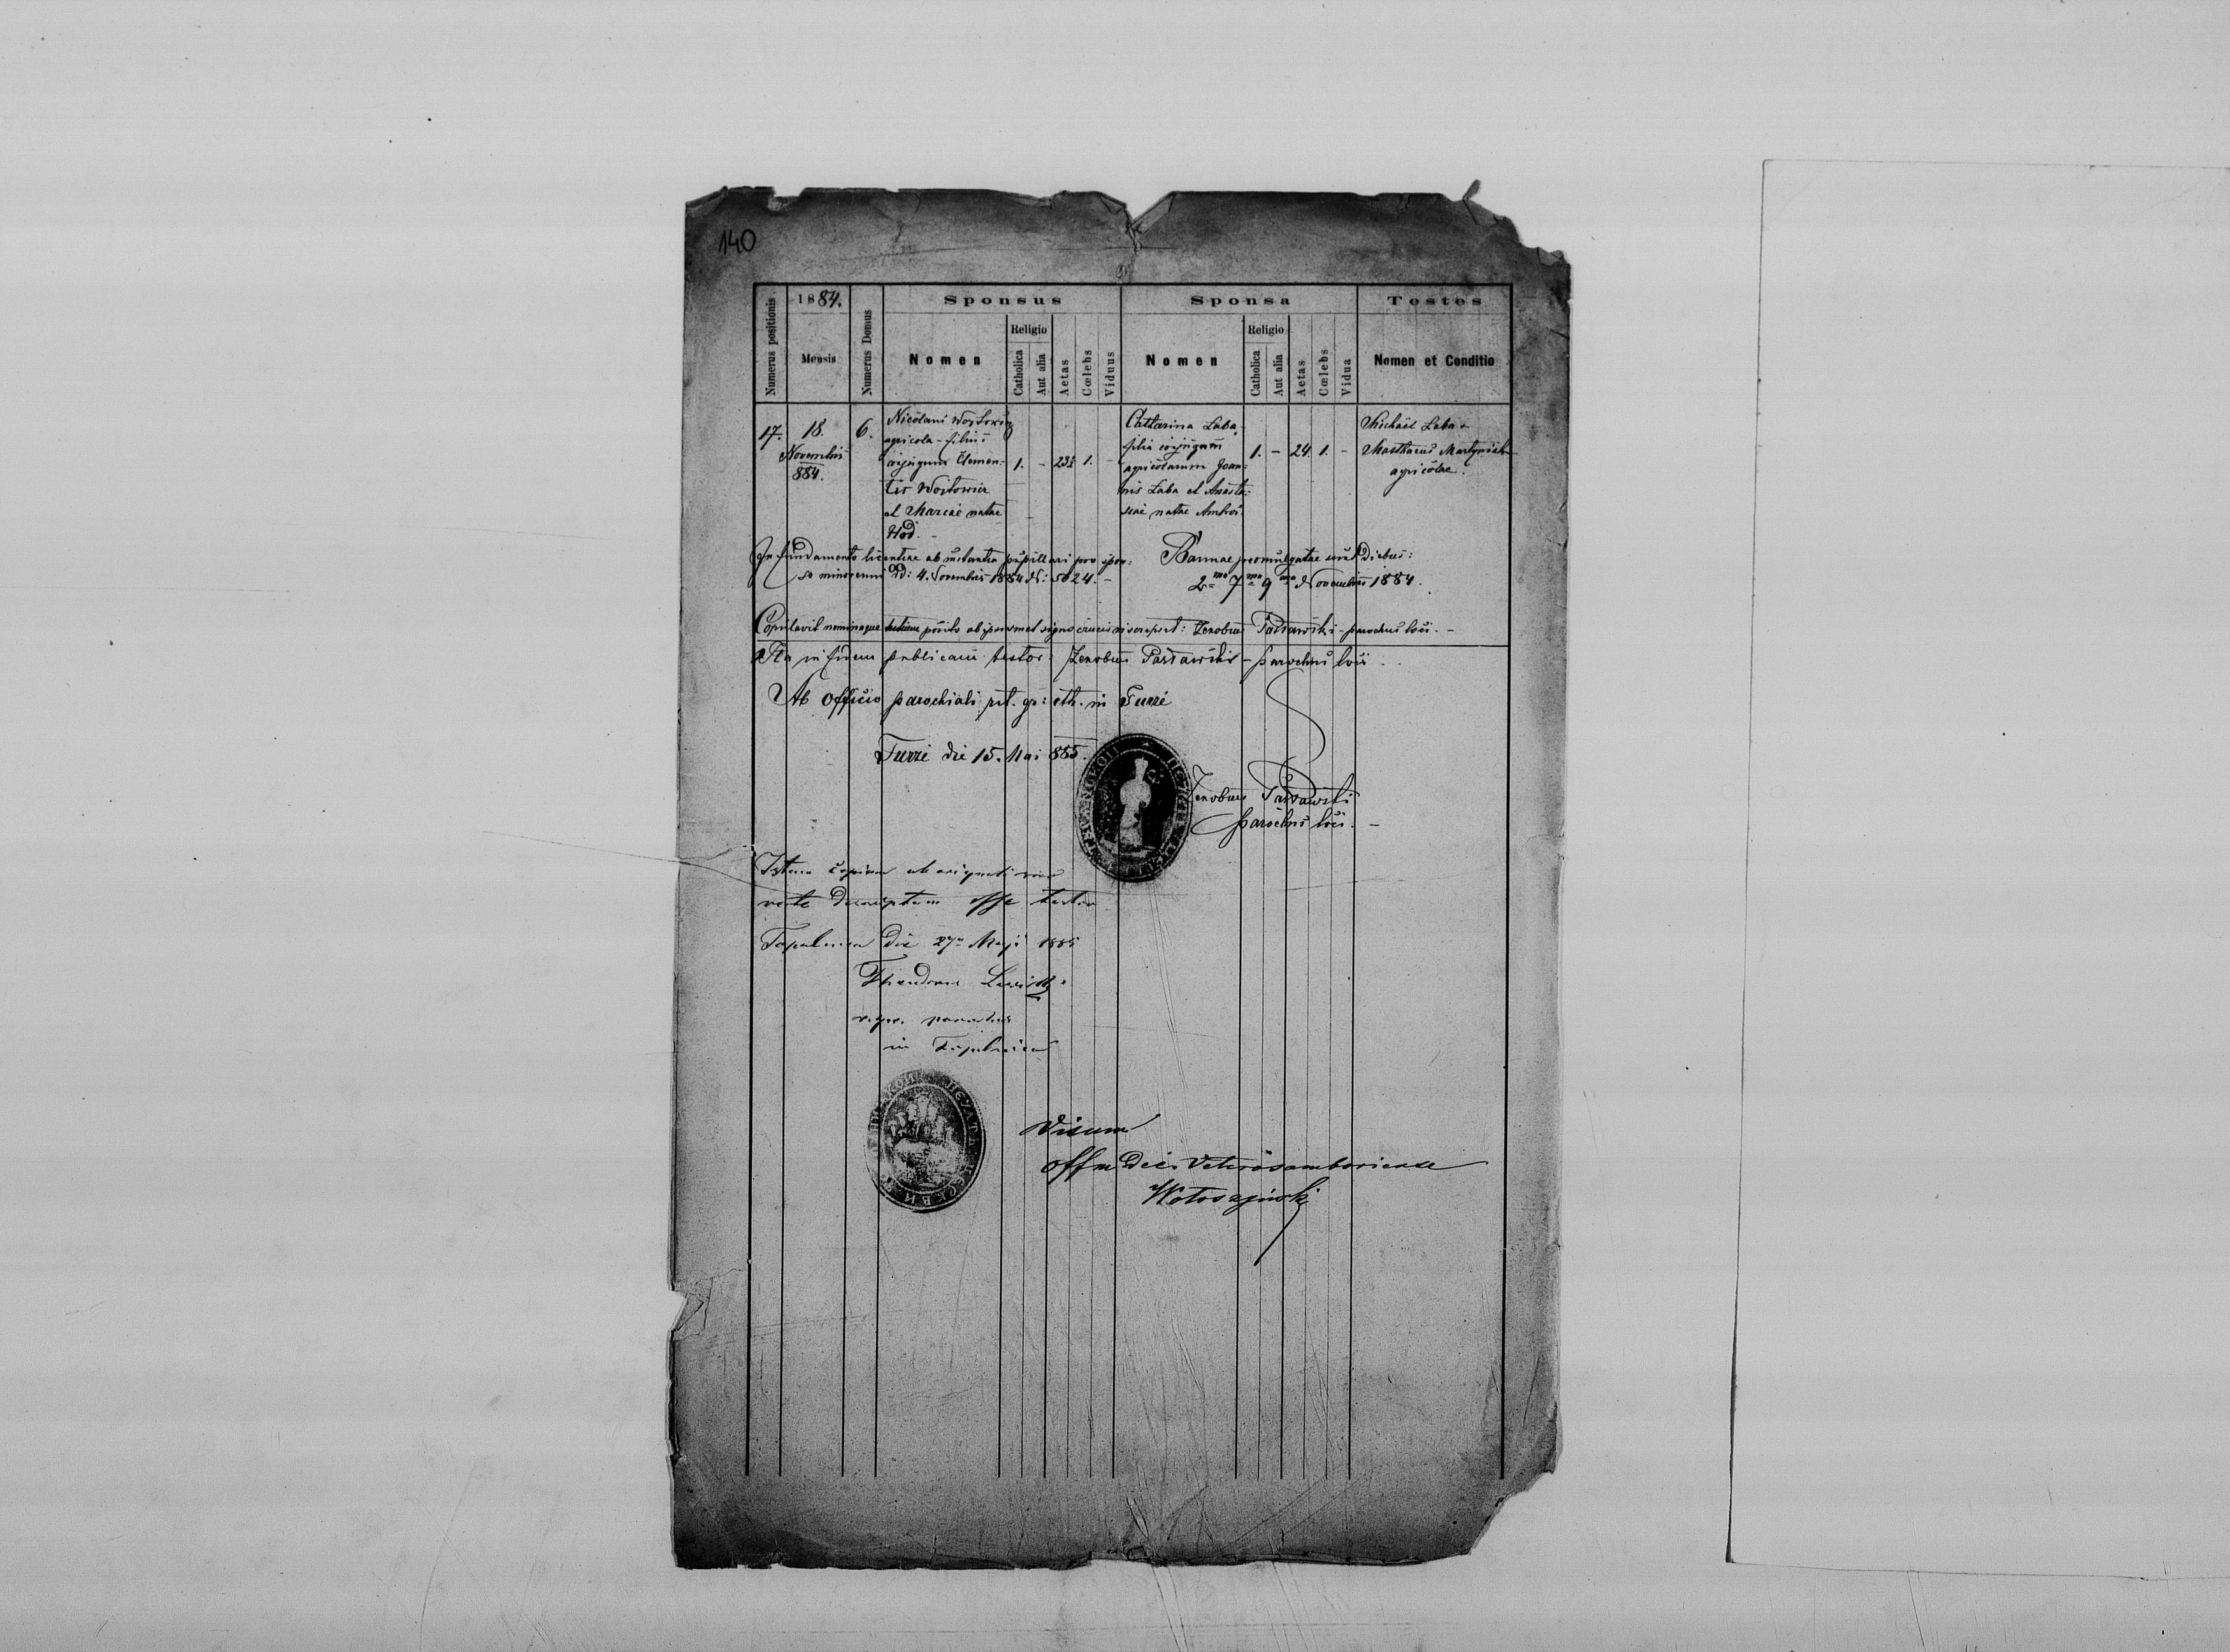 140
1884.
Sponsus Sponsa Testes
Numerus positionis Mensis Numerus Domus Nomen Religio Catholica Aut alia Aetas Cœlebs Viduus Nomen Religio Catholica Aut alia Aetas Cœlebs Vidua Nomen et Conditio
17.
18.
Novembris
884.
6.
Nicolaus Wojtowicz
agricola - filius
conjugum Clemen-
tis Wojtowicz
et Mariae natae
Hod. -
1. - 23½ 1. -
Catharina Laba
filia conjugum
agricolarum Joan-
nis Laba et Anasta-
siae natae Ambroż
1. - 24. 1. -
Michael Laba
Matthaeus Martyniak
agricolae.
In fundamento licentiae ab instantia pupillari pro spon-
so minorenni dd: 4. Novembris 1884 N: 5624. -
Bannae promulgatae sunt diebus:
2da 7ma 9na Novembris 1884.
Copulavit nominaque testium posito ab ipsismet signo crucis inscripsit: Zenobius Passawski - parochus loci. -
Ita in fidem publicam testor Zenobius Passawski - parochus loci
Ab Officio parochiali rit. gr: cth. in Turze
Turze die 15. Mai 885.
Zenobius Passawski
parochus loci. -
Istam copiam ab originali suo
recte descriptam esse testor
Topolnica die 27a Maji 1885
Theodorus
r. gr. parochus
in Topolnica
Visum
Offm Dec. Veterosamboriense
Wołoszyński